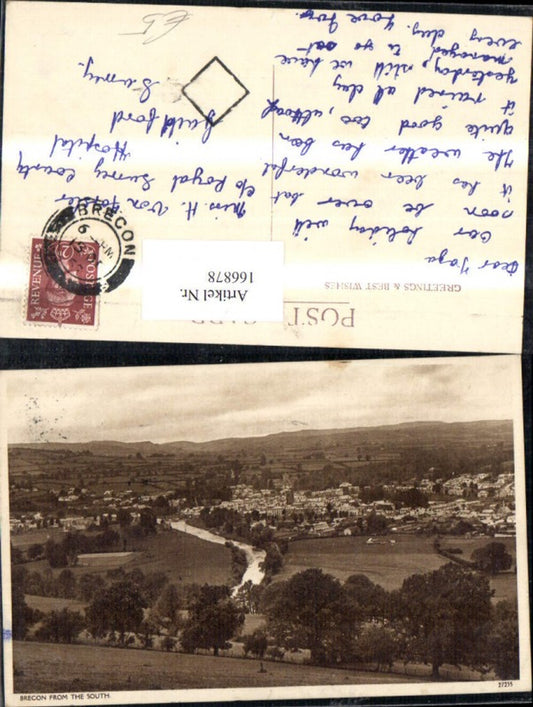 GREETINGS & BEST WISHES
POST CARD
Dear Jaga
Our holiday will
soon be over but
it has been wonderful
The weather has been
quite good too, although
it rained all day
yesterday, still we have
managed to go out
every day. Love from
Miss. H. Von
c/o Royal Surrey County
Hospital
Guildford
Surrey.
BRECON
POSTAGE
REVENUE
Artikel Nr.
166878
BRECON FROM THE SOUTH.
27215